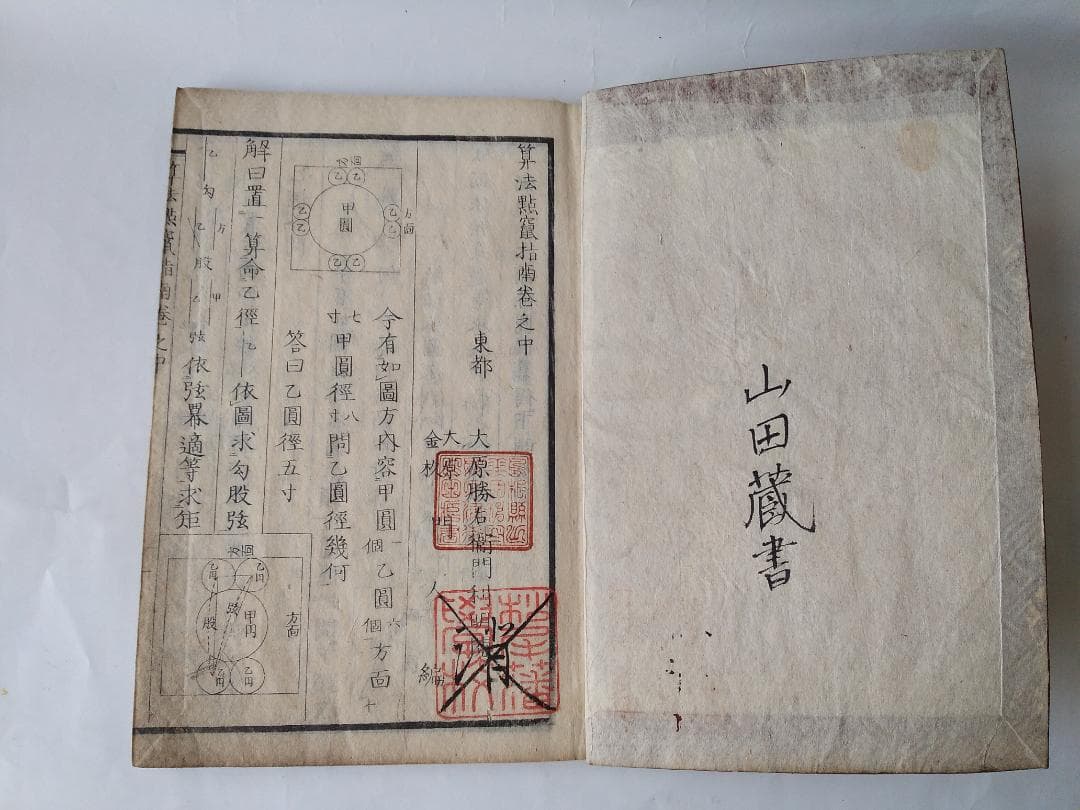 山田蔵書
算法點竄指南卷之中
東都
大原勝右衞門利明
門人
編
消
今有如圖方内容甲圓一個乙圓六個方面十
七寸甲圓徑八寸問乙圓徑幾何
答曰乙圓徑五寸
甲圓
乙
乙
乙
乙
乙
乙
乙
乙
方面
解曰置一算命乙徑
依圖求勾股弦
乙
勾
乙
方
股
乙
甲
弦
依弦羃適等求矩
方面
乙円
乙円
甲円
股
乙円
乙円
算法點竄指南卷之中